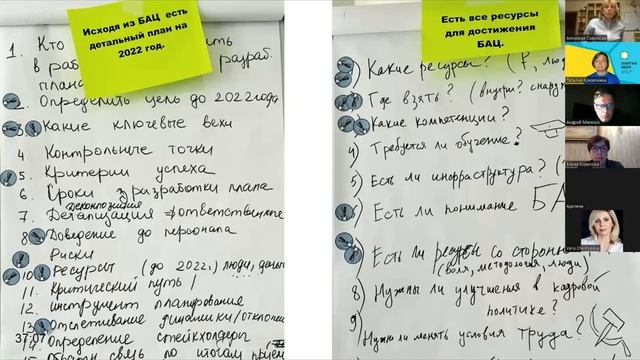 Исходя из БАЦ есть
детальный план на
2022 год.
1. Кто
в раб разраб.
плана
2. Определить цель до 2022 года
3 Какие ключевые вехи
4 Контрольные точки
5 Критерии успеха
6. Сроки разработки плана
Декомпозиция
7. Детализация ответственные
8 Доведение до персонала
Риски
10 Ресурсы (до 2022г.) люди, деньги
11. Критический путь
12. инструмент планирования
13 Отслеживание динамики/отклонен
Определение стейкхолдеры
связь по итогам прием
37:07
Есть все ресурсы
для достижения
БАЦ.
Какие ресурсы? (₽, люд
Где взять? (внутри? снаружи
Какие компетенции?
4) Требуется ли обучение?
5) Есть ли инфраструктура? (
Есть ли понимание БА
Есть ли ресурсы со стороны
(воля, методология, люди)
8) Нужны ли улучшения в кадровой
политике?
9) Нужно ли менять условия труда?
Антонина Соколова
ЭНЕРГИЯ
ИДЕЙ
Татьяна
Андрей
Елена
Аделина
Vera